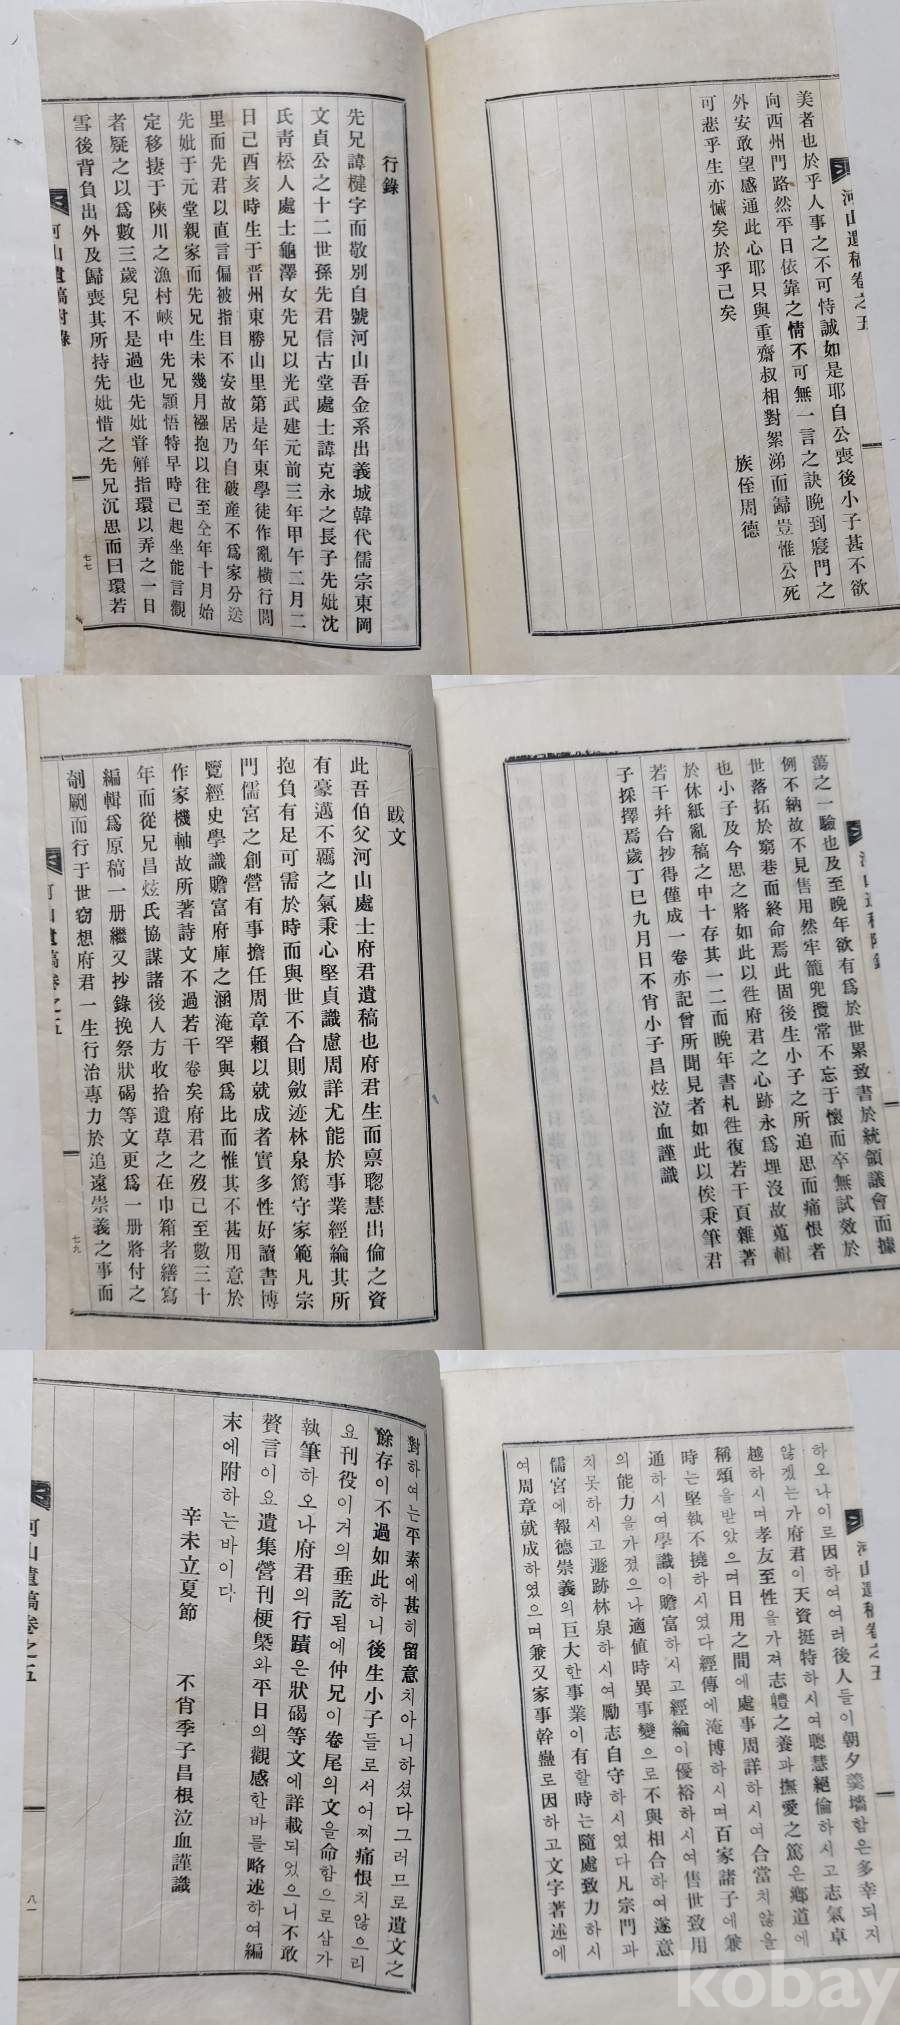 河山遺稿卷之五
美者也於乎人事之不可恃誠如是耶自公喪後小子甚不欲
向西州門路然平日依靠之情不可無一言之訣晩到寢門之
外安敢望感通此心耶只與重齋叔相對絮涕而歸豈惟公死
可悲乎生亦慽矣於乎己矣
族侄周德
行錄
先兄諱楗字而敬別自號河山吾金系出義城韓代儒宗東岡
文貞公之十二世孫先君信古堂處士諱克永之長子先妣沈
氏靑松人處士龜澤女先兄以光武建元前三年甲午二月二
日己酉亥時生于晋州東勝山里第是年東學徒作亂橫行閭
里而先君以直言偏被指目不安故居乃自破産不爲家分送
先妣于元堂親家而先兄生未幾月襁抱以往至仝年十月始
定移棲于陜川之漁村峽中先兄頴悟特早時已起坐能言觀
者疑之以爲數三歲兒不是過也先妣甞解指環以弄之一日
雪後背負出外及歸喪其所持先妣惜之先兄沉思而曰環若
河山遺稿附錄
七七
河山遺稿附錄
蕩之一驗也及至晩年欲有爲於世累致書於統領議會而據
例不納故不見售用然牢籠兜攬常不忘于懷而卒無試效於
世落拓於窮巷而終命焉此固後生小子之所追思而痛恨者
也小子及今思之將如此以徃府君之心跡永爲埋沒故蒐輯
於休紙亂稿之中十存其一二而晩年書札徃復若干頁雜著
若干幷合抄得僅成一卷亦記曾所聞見者如此以俟秉筆君
子採擇焉歲丁巳九月日不肖小子昌炫泣血謹識
跋文
此吾伯父河山處士府君遺稿也府君生而禀聰慧出倫之資
有豪邁不羈之氣秉心堅貞識慮周詳尤能於事業經綸其所
抱負有足可需於時而與世不合則斂迹林泉篤守家範凡宗
門儒宮之創營有事擔任周章賴以就成者實多性好讀書博
覽經史學識贍富府庫之涵淹罕與爲比而惟其不甚用意於
作家機軸故所著詩文不過若干卷矣府君之歿已至數三十
年而從兄昌炫氏協謀諸後人方收拾遺草之在巾箱者繕寫
編輯爲原稿一册繼又抄錄挽祭狀碣等文更爲一册將付之
剞劂而行于世窃想府君一生行治專力於追遠崇義之事而
河山遺稿卷之五
七九
河山遺稿卷之五
하오나이로因하여여러後人들이朝夕羹墻함은多幸되지
않겠는가府君이天資挺特하시여聰慧絕倫하시고志氣卓
越하시며孝友至性을가져志軆之養과撫愛之篤은鄕道에
稱頌을받았으며日用之間에處事周詳하시여合當치않을
時는堅執不撓하시였다經傳에淹博하시며百家諸子에兼
通하시여學識이贍富하시고經綸이優裕하시여售世致用
의能力을가졌으나適値時異事變으로不與相合하여遂意
치못하시고遯跡林泉하시여勵志自守하시였다凡宗門과
儒宮에報德崇義의巨大한事業이有할時는隨處致力하시
여周章就成하였으며兼又家事幹蠱로因하고文字著述에
對하여는平素에甚히留意치아니하셨다그러므로遺文之
餘存이不過如此하니後生小子들로서어찌痛恨치않으리
요刊役이거의垂訖됨에仲兄이卷尾의文을命함으로삼가
執筆하오나府君의行蹟은狀碣等文에詳載되었으니不敢
贅言이요遺集營刊梗槩와平日의觀感한바를略述하여編
末에附하는바이다
辛未立夏節　不肖季子昌根泣血謹識
河山遺稿卷之五
八一
kobay